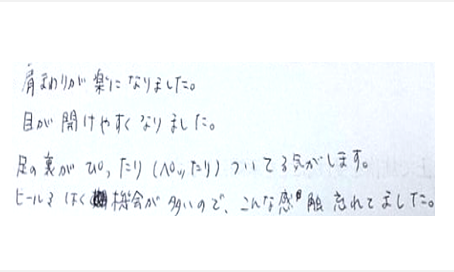 肩まわりが楽になりました。
目が開けやすくなりました。
足の裏がぴったり(ペッたり)ついてる気がします。
ヒールをはく機会が多いので、こんな感触忘れてました。